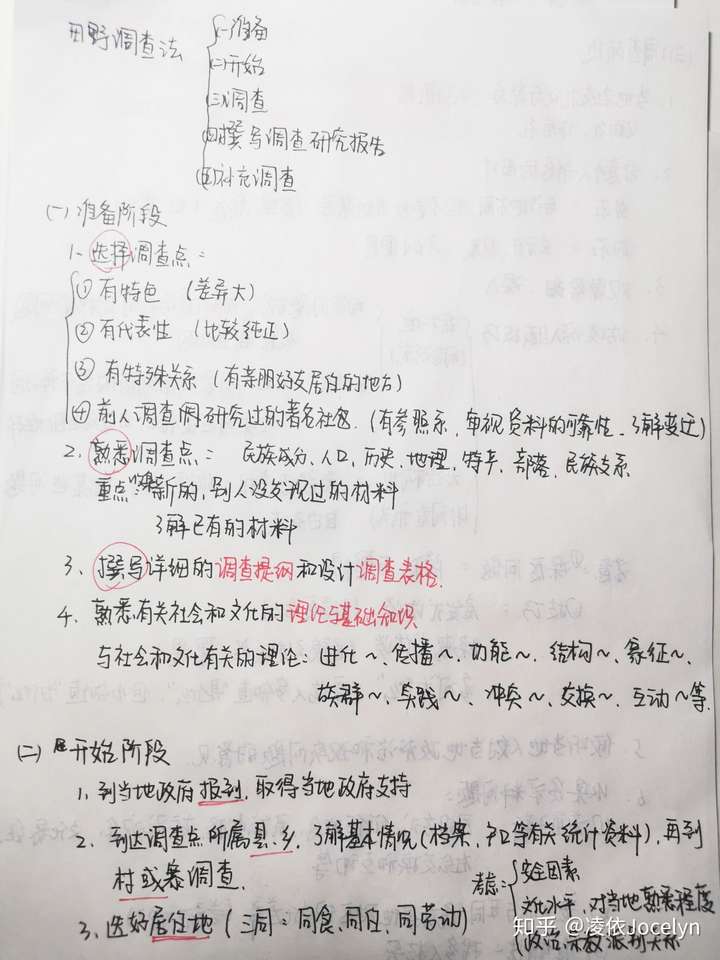 田野调查法
(一)准备
(二)开始
(三)调查
(四)撰写调查研究报告
(五)补充调查
(一)准备阶段
1. 选择调查点：
① 有特色 (差异大)
② 有代表性 (比较纯正)
③ 有特殊关系 (有亲朋好友居住的地方)
④ 前人调查研究过的著名社区. (有参照系, 审视资料的可靠性, 了解变迁)
2. 熟悉调查点： 民族成分、人口、历史、地理、特产、部落、民族支系
重点：收集新的, 别人没发现过的材料
了解已有的材料
3、撰写详细的调查提纲和设计调查表格.
4、熟悉有关社会和文化的理论与基础知识
与社会和文化有关的理论：进化～、传播～、功能～、结构～、象征～、
族群～、实践～、冲突～、交换～、互动～等.
(二) 开始阶段
1、到当地政府报到, 取得当地政府支持
2、到达调查点所属县、乡, 了解基本情况(档案, 户口等有关统计资料), 再到
村或寨调查.
3、选好居住地 (三同：同食、同住、同劳动)
考虑：
安全因素
文化水平, 对当地熟悉程度
政治、宗教派别关系
知乎 @凌依Jocelyn